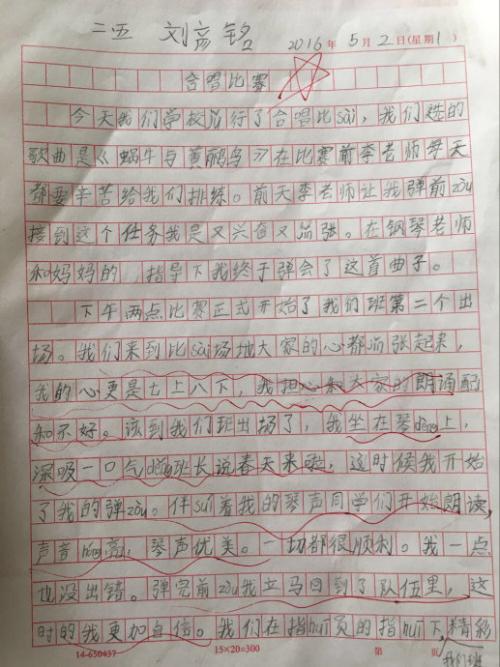 二五 刘彦铭
2016年5月2日(星期1)
合唱比赛
今天我们学校举行了合唱比sài，我们选的
歌曲是《蜗牛与黄鹂鸟》在比赛前李老师每天
都要辛苦给我们排练。前天李老师让我弹前zòu
接到这个任务我是又兴奋又紧张。在钢琴老师
和妈妈的 指导下我终于弹会了这首曲子。
下午两点比赛正式开始了我们班第二个出
场。我们来到比sài场地大家的心都紧张起来，
我的心更是七上八下，我担心和大家的朗诵配
和不好。该到我们班出场了，我坐在琴dèng上，
深吸一口气dāng班长说春天来啦，这时候我开始
了我的弹zòu。伴suí着我的琴声同学们开始朗读，
声音hóng亮，琴声优美。一切都很顺利。我一点
也没出错。弹完前zòu我立马回到了队伍里，这
时的我更加自信。我们在指huī员的指huī下,精彩
14-650437 15×20=300 第 页 我们班